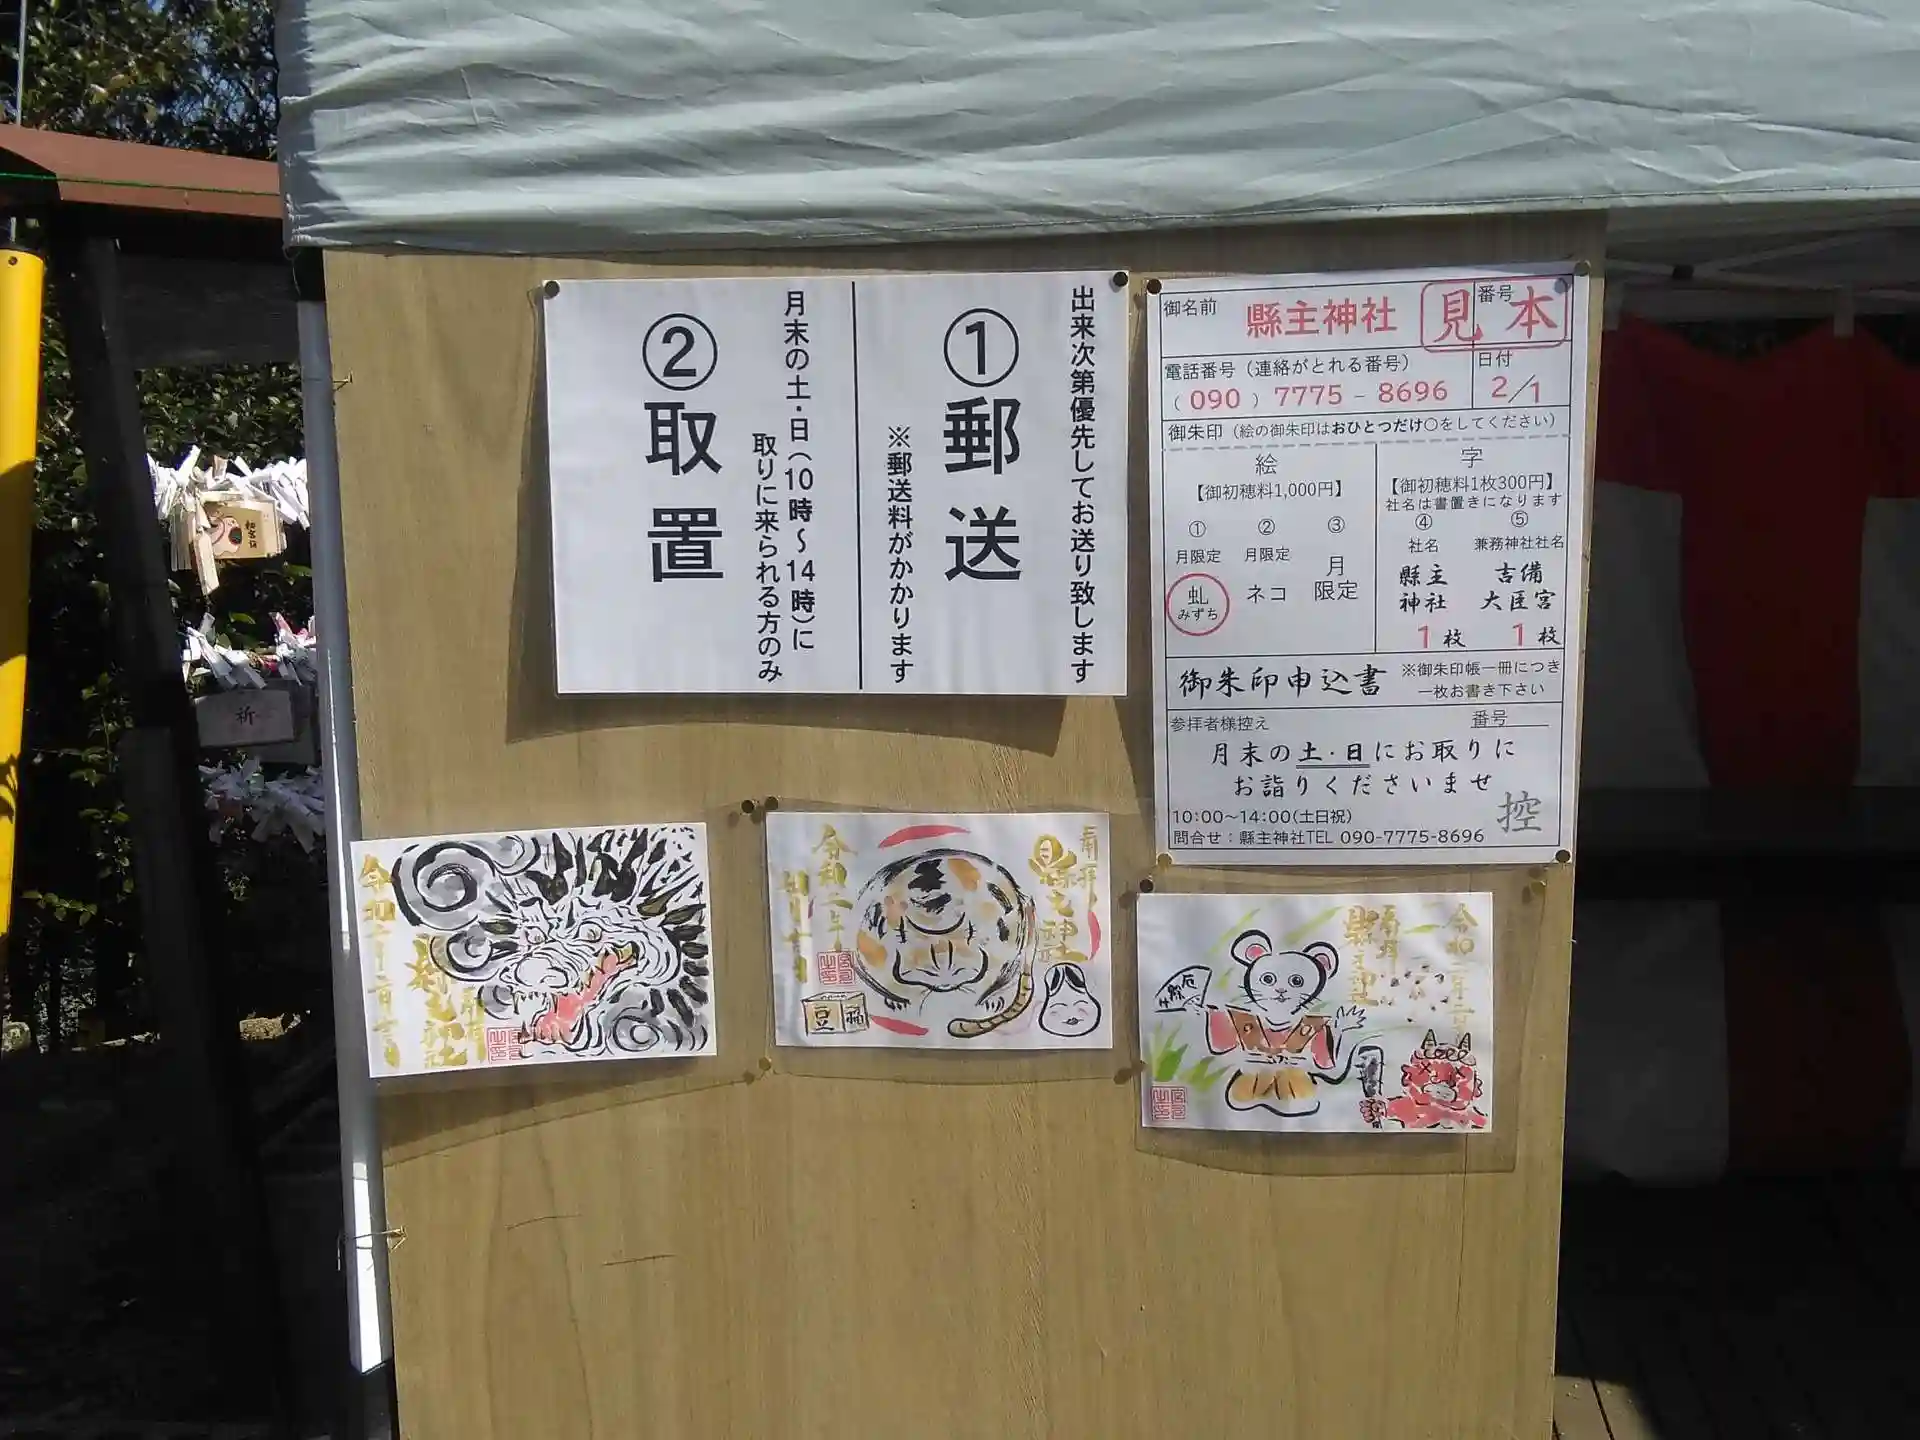 出来次第優先してお送り致します
①郵送
※郵送料がかかります
月末の土・日(10時〜14時)に
取りに来られる方のみ
②取置
御名前
縣主神社
番号
見本
電話番号(連絡がとれる番号)
(090)7775-8696
日付
2/1
御朱印(絵の御朱印はおひとつだけ○をしてください)
絵
【御初穂料1,000円】
① ② ③
月限定 月限定 月限定
虬 ネコ
みずち
字
【御初穂料1枚300円】
社名は書置きになります
④ ⑤
社名 兼務神社社名
縣主 吉備
神社 大臣宮
1枚 1枚
御朱印申込書
※御朱印帳一冊につき
一枚お書き下さい
参拝者様控え
番号
月末の土・日にお取りに
お詣りくださいませ
控
10:00〜14:00(土日祝)
問合せ:縣主神社TEL 090-7775-8696
縣主神社
豆
福
祈